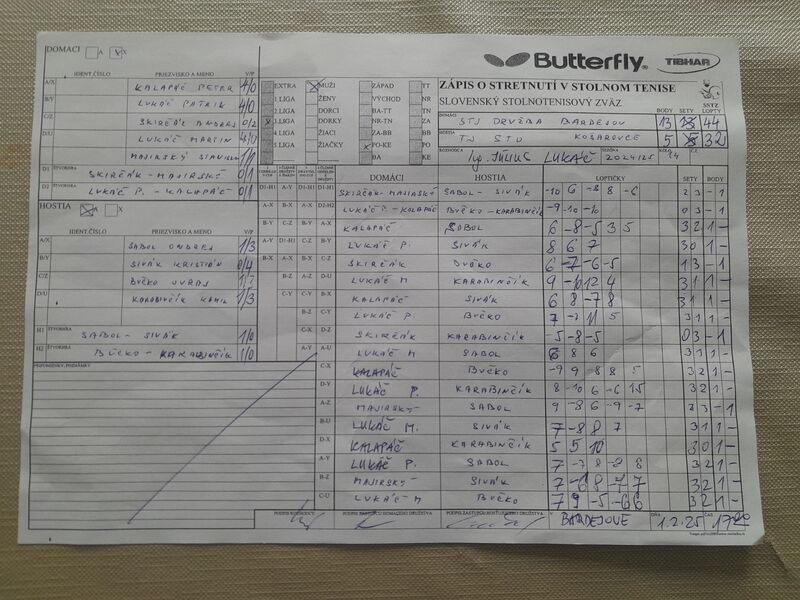 DOMÁCI A X
Butterfly TIBHAR
IDENT.ČÍSLO PRIEZVISKO A MENO V/P
ZÁPIS O STRETNUTÍ V STOLNOM TENISE
SLOVENSKÝ STOLNOTENISOVÝ ZVÄZ
EXTRA MUŽI ZÁPAD TT
1.LIGA ŽENY VÝCHOD NR
2.LIGA DORCI BA-TT TN
3.LIGA DORKY NR-TN ZA
4.LIGA ŽIACI ZA-BB BB
5.LIGA ŽIAČKY PO-KE PO
BA KE
BODY SETY LOPTY
DOMÁCI STJ DRUŽBA BARDEJOV 13 44
HOSTIA TJ ŠTO KOŠAROVCE 5 32
ROZHODCA Ing. JÚLIUS LUKÁČ SEZÓNA 2024/25 KOLO 14
A/X KALAPÁČ PETER 4/0
B/Y LUKÁČ PATRIK 4/0
C/Z SKIRČÁK ANDREJ 0/2
D/U LUKÁČ MARTIN
MAJIRSKÝ 1/1
D1 ŠTVORHRA SKIRČÁK - MAJIRSKÝ 0/1
D2 ŠTVORHRA LUKÁČ P. - KALAPÁČ 0/1
HOSTIA A X
IDENT.ČÍSLO PRIEZVISKO A MENO V/P
A/X SABOL ONDREJ 1/3
B/Y SIVÁK KRISTIÁN 0/4
C/Z BUČKO JURAJ
D/U KARABINČÍK KAMIL 1/3
H1 ŠTVORHRA SABOL - SIVÁK 1/0
H2 ŠTVORHRA BUČKO - KARABINČÍK 1/0
PRIPOMIENKY, POZNÁMKY
DOMÁCI HOSTIA LOPTIČKY SETY BODY
SKIRČÁK-MAJIRSKÝ SABOL - SIVÁK -10 6 -8 8 -6 2 3 - 1
LUKÁČ P. - KALAPÁČ BUČKO - KARABINČÍK -9 -10 -10 0 3 - 1
KALAPÁČ SABOL 6 -8 -5 3 5 3 2 1 -
LUKÁČ P. SIVÁK 8 6 7 3 0 1 -
SKIRČÁK BUČKO 6 -7 -6 -5 1 3 - 1
LUKÁČ M KARABINČÍK 9 -10 12 4 3 1 1 -
KALAPÁČ SIVÁK 6 8 -7 8 3 1 1 -
LUKÁČ P. BUČKO 7 -7 11 5 3 1 1 -
SKIRČÁK KARABINČÍK -5 -8 -5 0 3 - 1
LUKÁČ M SABOL 6 8 6 3 1 1 -
KALAPÁČ BUČKO -9 9 -8 8 5 3 2 1 -
LUKÁČ P. KARABINČÍK 8 -10 6 -6 15 3 2 1 -
MAJIRSKÝ SABOL 9 -8 6 -9 -7 2 3 - 1
LUKÁČ M. SIVÁK 7 -8 8 7 3 1 1 -
KALAPÁČ KARABINČÍK 5 5 10 3 0 1 -
LUKÁČ P. SABOL 7 -7 8 -8 8 3 2 1 -
MAJIRSKÝ SIVÁK 7 -6 8 -7 7 3 2 1 -
LUKÁČ M BUČKO 7 9 -5 -6 6 3 2 1 -
PODPIS ROZHODCU PODPIS ZÁSTUPCU DOMÁCEHO DRUŽSTVA PODPIS ZÁSTUPCU HOSŤUJÚCEHO DRUŽSTVA V BARDEJOVE DŇA 1.2.25 ČAS 17:00